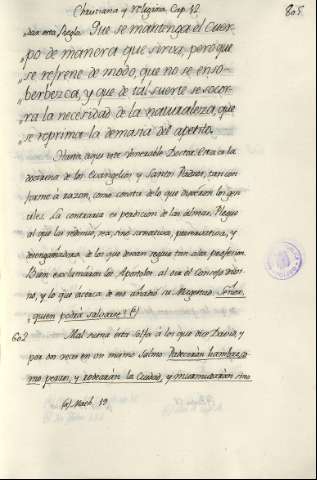 Christiana y Religiosa. Cap. 42
805
dan esta Regla: Que se mantenga el Cuer-
„po de manera que sirva, pero que
„se refrene de modo, que no se enso-
„berbezca, y que de tal suerte se socor-
„ra la necesidad de la naturaleza, que
„se reprima la demasia del apetito.
Hasta aqui este Venerable Doctor. Esta es la
doctrina de los Evangelios, y Santos Padres, tan con
forme à razon, como consta de lo que dixeron los gen-
tiles. La contraria es perdicion de las Almas. Plegue
al que las redimiò, no sea
desengañadora, de los que deven seguir tan alta profesion.
Bien exclamaron los Apostoles al oir el Consejo divi-
no, y lo que acerca de èl añadiò su Magestad. Señor,
„quien podrà salvarse? (a)
602
Mal suena esta Solfa à los que dice David, y
por dos veces en un mismo Salmo: Padeceràn hambre co
mo perros, y rodearàn la Ciudad, y murmuraràn sino
(a) Math. 19